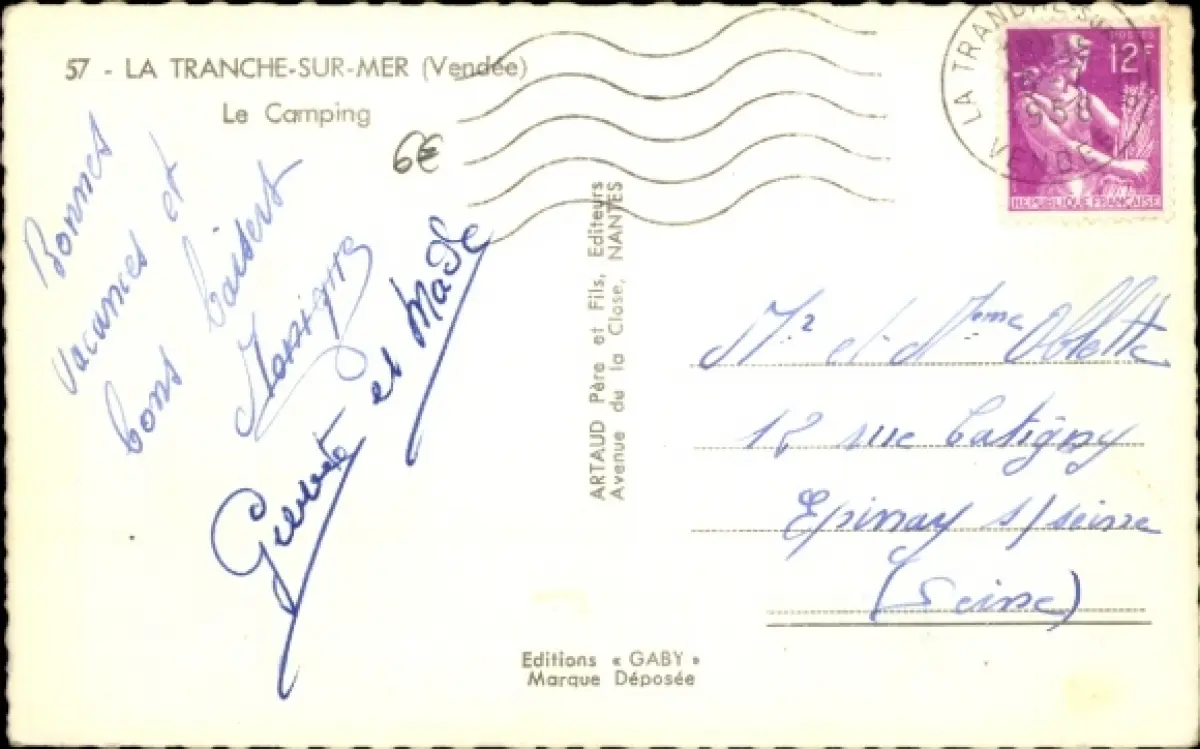 57 - LA TRANCHE-SUR-MER (Vendée)
Le Camping
6€
Bonnes
vacances et
bons baisers
et Made
ARTAUD Père et Fils, Editeurs
Avenue du la Close, NANTES
Editions « GABY »
Marque Déposée
LA TRANCHE-SUR
VENDEE
POSTES
12F
REPUBLIQUE FRANÇAISE
Mr et Mme
12 rue Catigny
Epinay s/seine
(Seine)